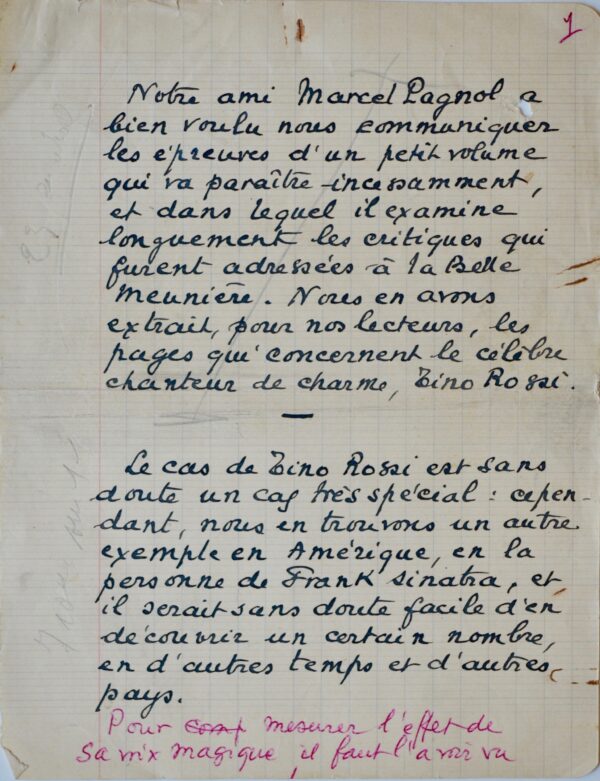 1
Notre ami Marcel Pagnol a
bien voulu nous communiquer
les épreuves d'un petit volume
qui va paraître incessamment,
et dans lequel il examine
longuement les critiques qui
furent adressées à la Belle
Meunière. Nous en avons
extrait, pour nos lecteurs, les
pages qui concernent le célèbre
chanteur de charme, Tino Rossi.
Le cas de Tino Rossi est sans
doute un cas très spécial : cepen-
dant, nous en trouvons un autre
exemple en Amérique, en la
personne de Frank Sinatra, et
il serait sans doute facile d'en
découvrir un certain nombre,
en d'autres temps et d'autres
pays.
Pour mesurer l'effet de
sa voix magique, il faut l'avoir vu